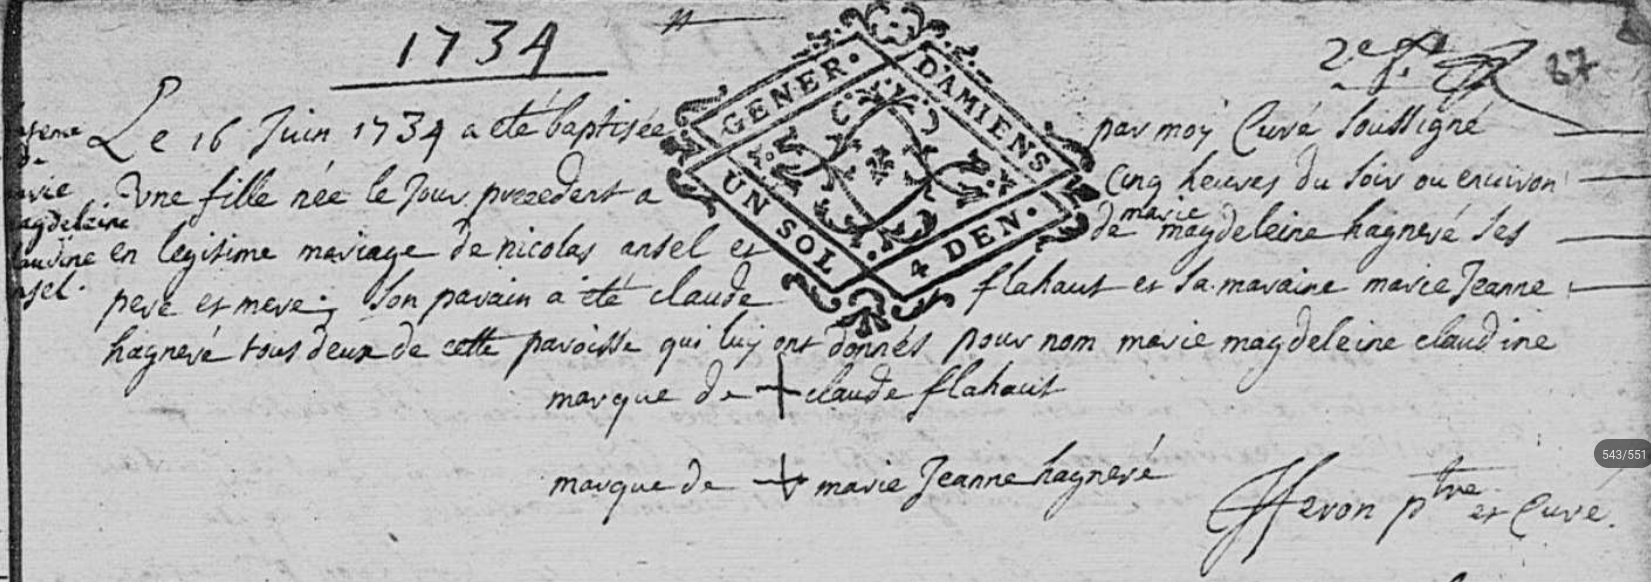 1734
2e
87
GENER. D'AMIENS
UN SOL. 4 DEN.
Le 16 Juin 1734 a eté baptisée par moy Curé soussigné
Une fille née le Jour precedent a Cinq heures du soir ou environ
en legitime mariage de nicolas ansel et de marie magdeleine hagneré ses
pere et mere; son parain a eté claude flahaut et sa maraine marie Jeanne
hagneré tous deux de cette paroisse qui luy ont donnés pour nom marie magdeleine claudine
marque de + claude flahaut
marque de + marie Jeanne hagneré
heron ptre et Curé.
543/551